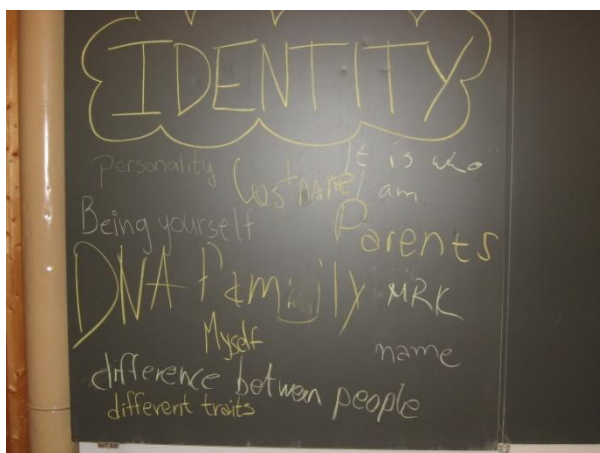 IDENTITY
personality
It is who
I am
Being yourself
Parents
DNA Family MRK
Myself
name
difference between people
different traits